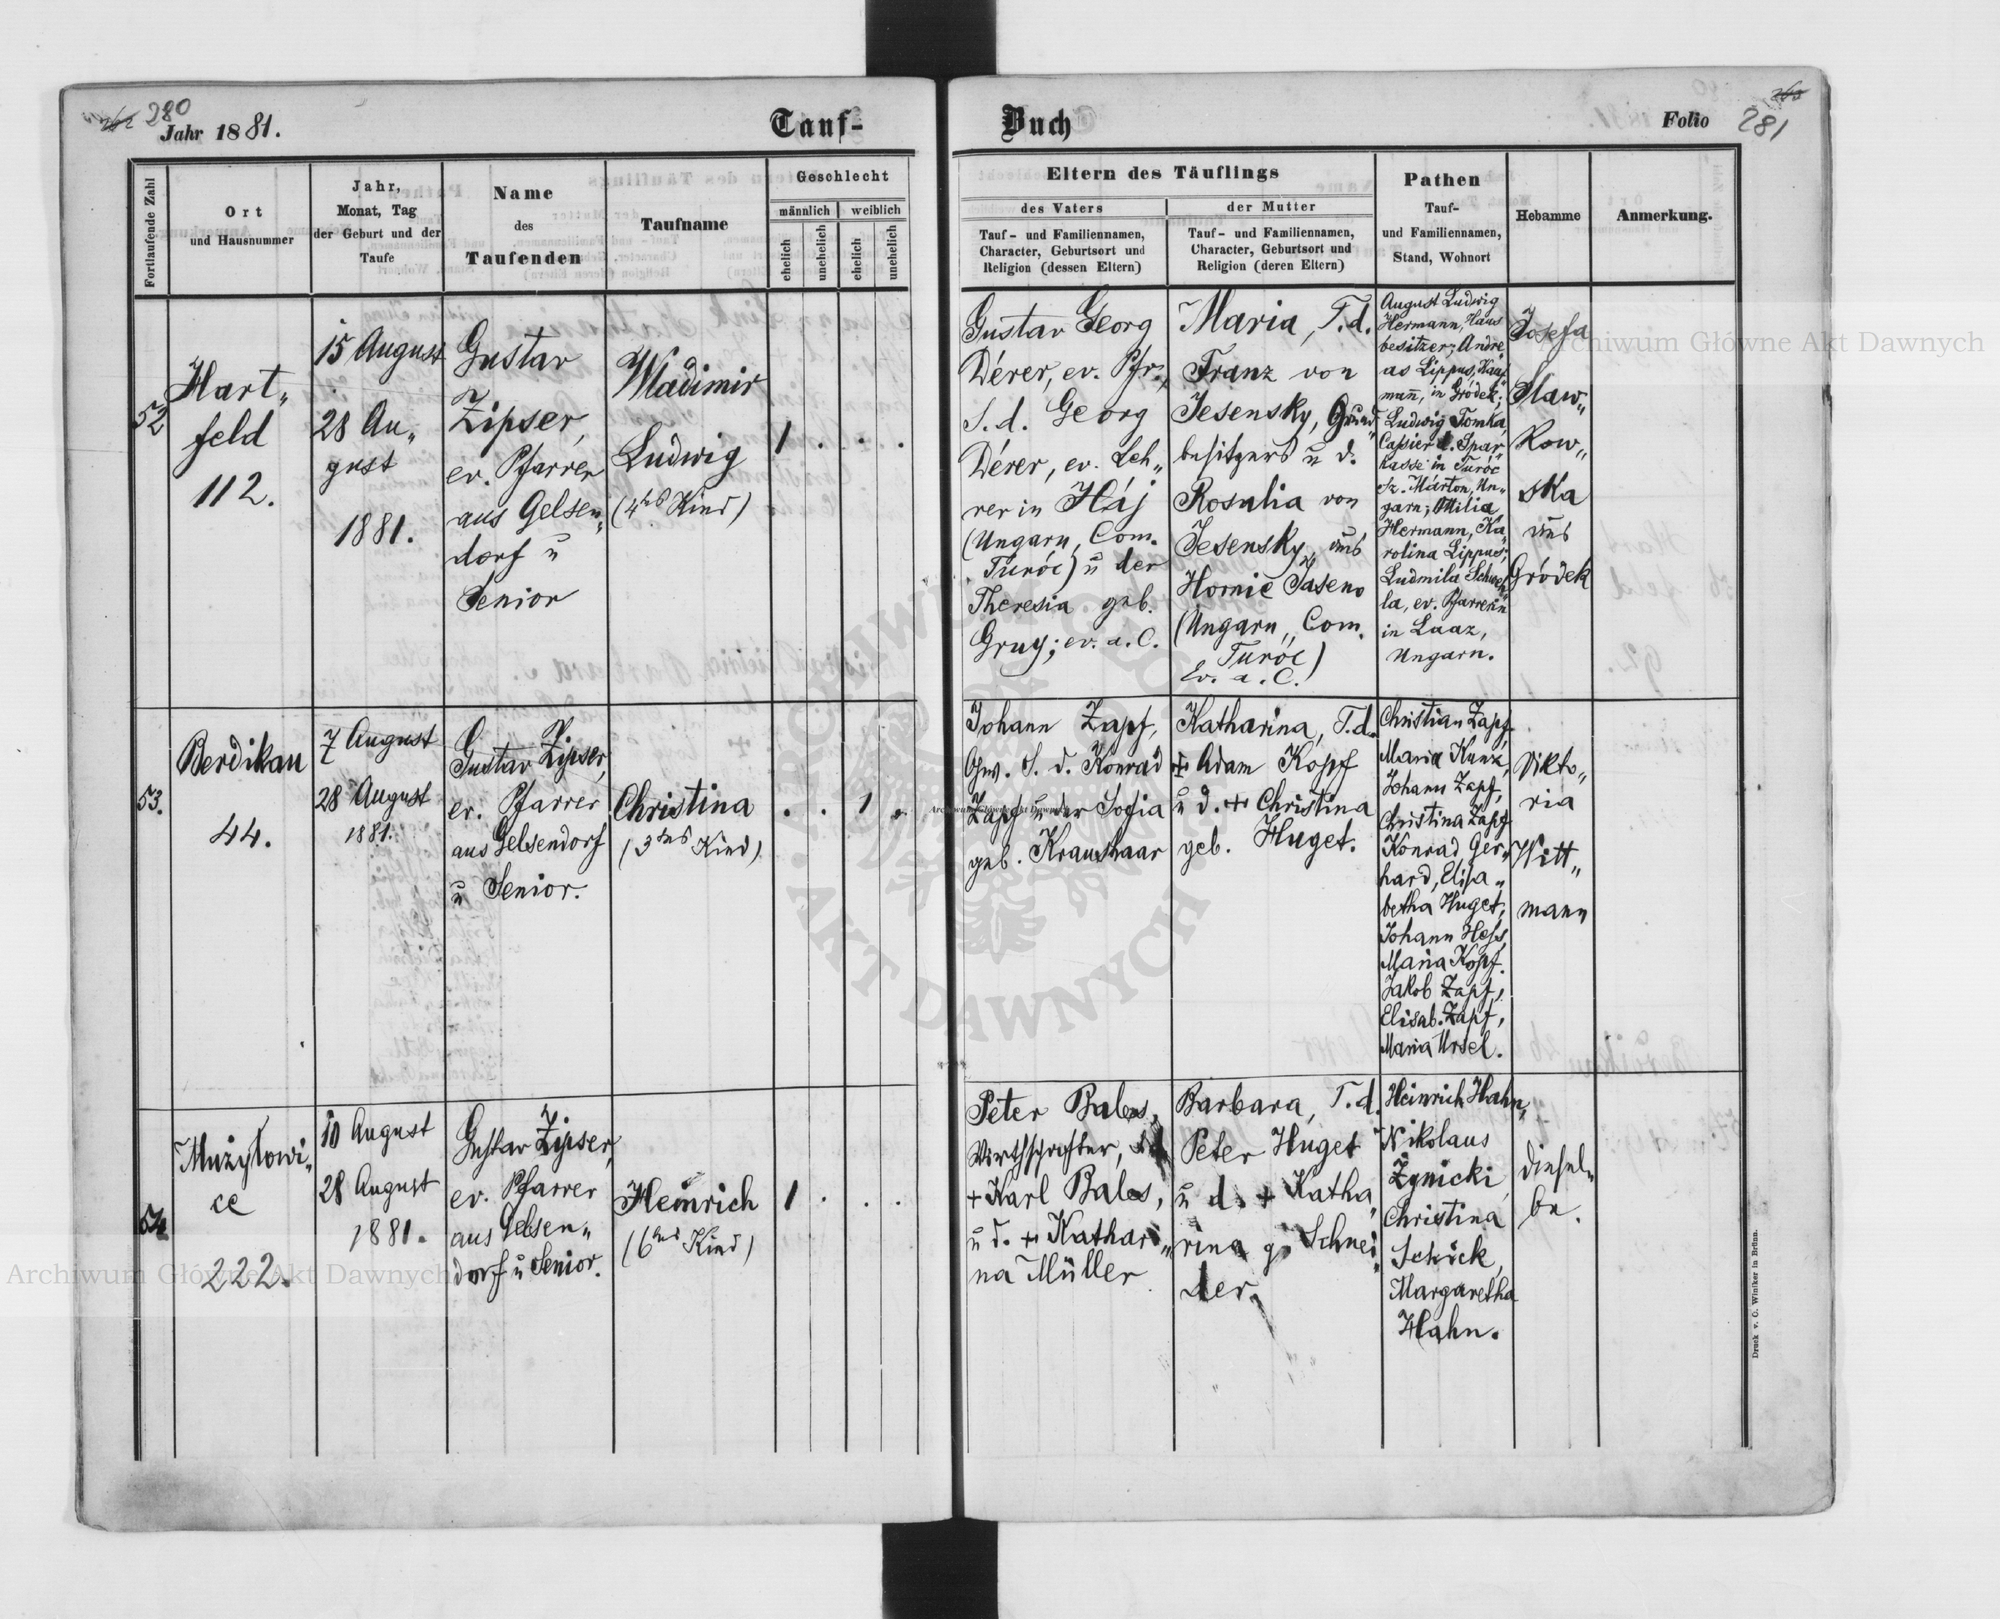 280
Jahr 1881.
Tauf-
Buch
Folio
281
Fortlaufende Zahl
Ort
und Hausnummer
Jahr,
Monat, Tag
der Geburt und der
Taufe
Name
des
Taufenden
Taufname
Geschlecht
männlich
weiblich
ehelich
unehelich
ehelich
unehelich
Eltern des Täuflings
des Vaters
Tauf- und Familiennamen,
Character, Geburtsort und
Religion (dessen Eltern)
der Mutter
Tauf- und Familiennamen,
Character, Geburtsort und
Religion (deren Eltern)
Pathen
Tauf-
und Familiennamen,
Stand, Wohnort
Hebamme
Anmerkung.
52
Hart„
feld
112.
15 August
28 Au„
gust
1881.
Gustav
Zipser,
ev. Pfarrer
aus Gelsen„
dorf u
Senior
Wladimir
Ludwig
(4tes Kind)
1 . . .
Gustav Georg
Dérer, ev. Pfr.,
S. d. Georg
Dérer, ev. Leh„
rer in Háj
(Ungarn, Com.
Turóc) u der
Theresia geb.
Gruy; ev. a. C.
Maria, T. d.
Franz von
Jesensky, Grund„
besitzers u d.
Rosalia von
Jesensky, aus
Hornie Jaseno
(Ungarn, Com.
Turóc)
Ev. a. C.
August Ludwig
Hermann, Haus
besitzer; Andre„
as Lippus, Kauf„
mann, in Gródek;
Ludwig Tomka,
Cassier d. Spar„
kasse in Turóc
Sz. Márton, Un„
garn; Ottilia
Hermann, Ka„
rolina Lippus
Ludmila Schweh„
la, ev. Pfarrerin
in Laaz,
Ungarn.
Josefa
Slaw„
Kow„
ska
aus
Gródek
53.
Berdikau
44.
7 August
28 August
1881.
Gustav Zipser,
ev. Pfarrer
aus Gelsendorf
u Senior.
Christina
(3tes Kind)
. . 1 .
Johann Zapf,
Gw. S. d. Konrad
Zapf u der Sofia
geb. Kraushaar
Katharina, T. d.
+ Adam Kopf
u d. + Christina
geb. Huget.
Christian Zapf
Maria Kunz,
Johann Zapf,
Christina Zapf
Konrad Ger„
hard, Elisa„
betha Huget,
Johann Hess,
Maria Kopf.
Jakob Zapf,
Elisab. Zapf,
Maria Ursel.
Vikto„
ria
Witt„
mann
54
Mużyłowi„
ce
222.
10 August
28 August
1881.
Gustav Zipser,
ev. Pfarrer
aus Gelsen„
dorf u Senior.
Heinrich
(6tes Kind)
1 . . .
Peter Bales,
Wirthschafter,
+ Karl Bales,
u d. + Kathari„
na Müller
Barbara, T. d.
Peter Huget
u d. + Katha„
rina g. Schnei„
der.
Heinrich Hahn,
Nikolaus
Zynicki,
Christina
Schick,
Margaretha
Hahn.
diesel„
be.
Druck v. C. Winiker in Brünn.
Archiwum Główne Akt Dawnych
Archiwum Główne Akt Dawnych
Archiwum Główne Akt Dawnych
ARCHIWUM GŁÓWNE AKT DAWNYCH